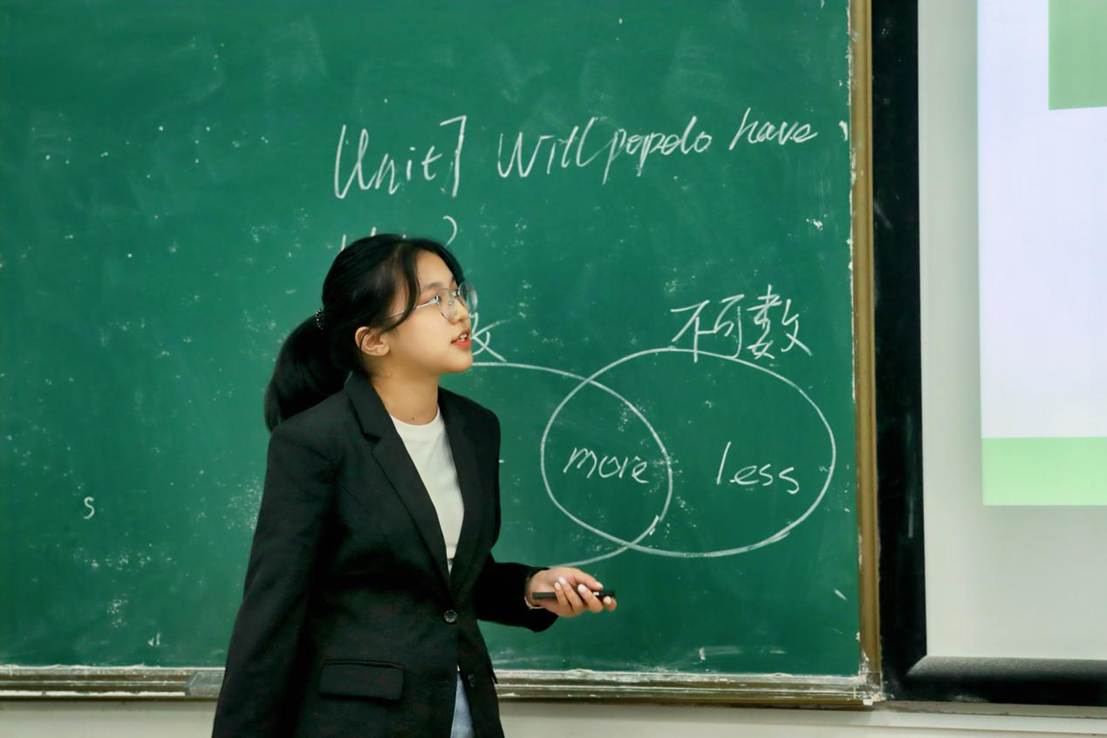 Unit7 Will popelo have
不可数
more less
s